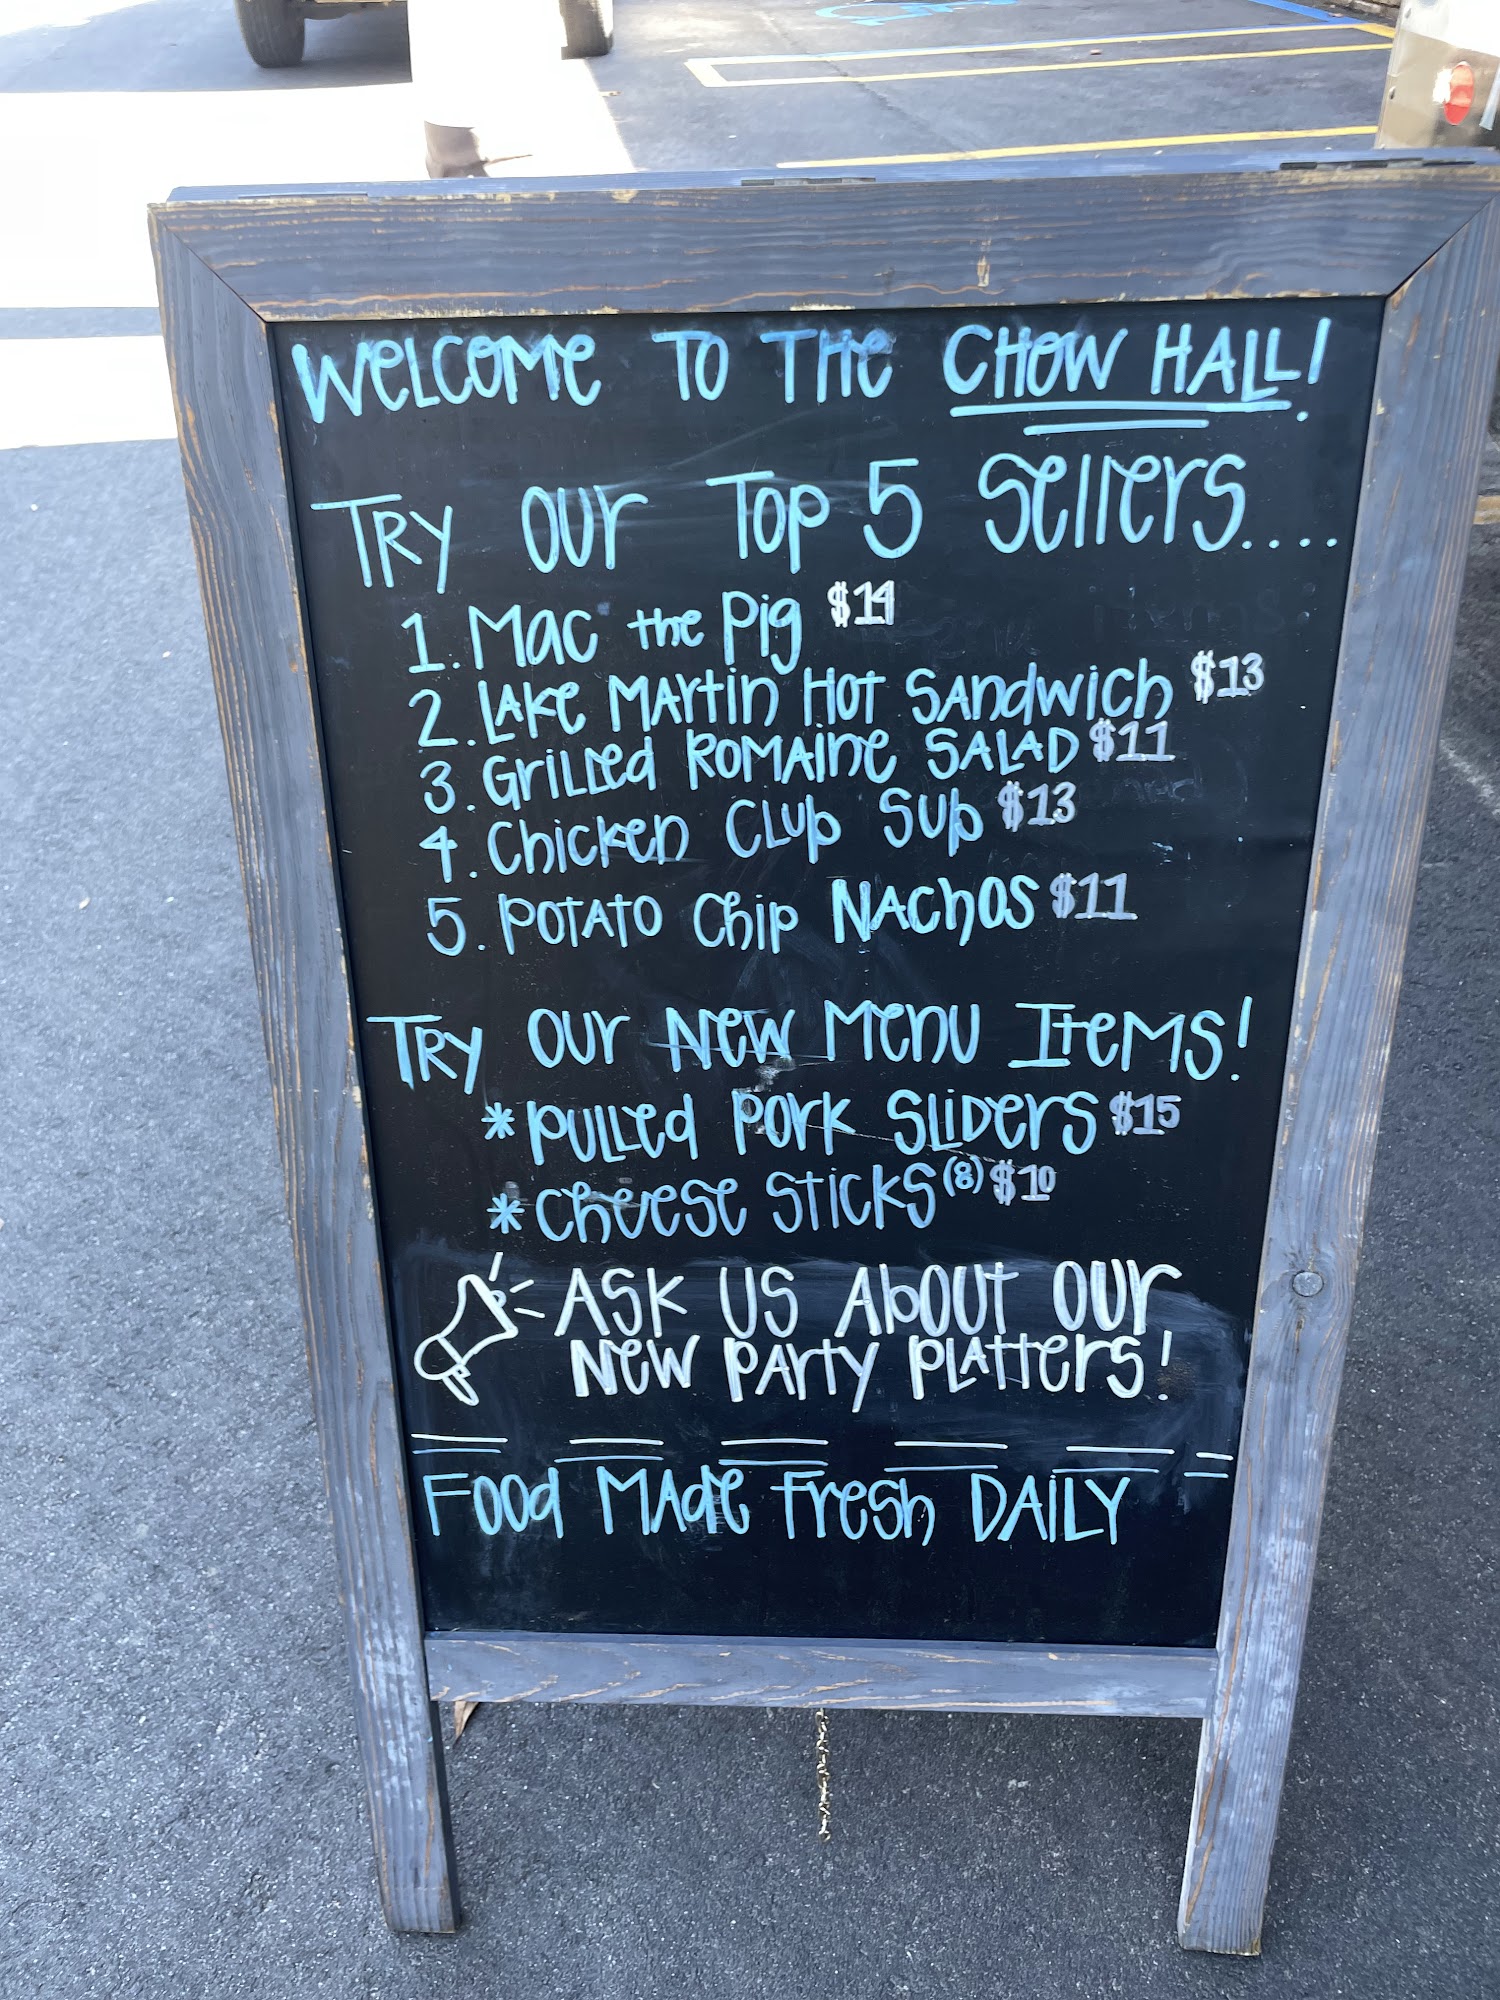 WELCOME TO THE CHOW HALL!
TRY OUR TOP 5 SELLERS....
1. MAC the Pig $14
2. LAKE MARTIN HOT SANDWICH $13
3. GRILLED ROMAINE SALAD $11
4. CHICKEN CLUB SUB $13
5. POTATO CHIP NACHOS $11
TRY OUR NEW MENU ITEMS!
*PULLED PORK SLIDERS $15
*CHEESE STICKS (8) $10
ASK US ABOUT OUR
NEW PARTY PLATTERS!
FOOD MADE FRESH DAILY